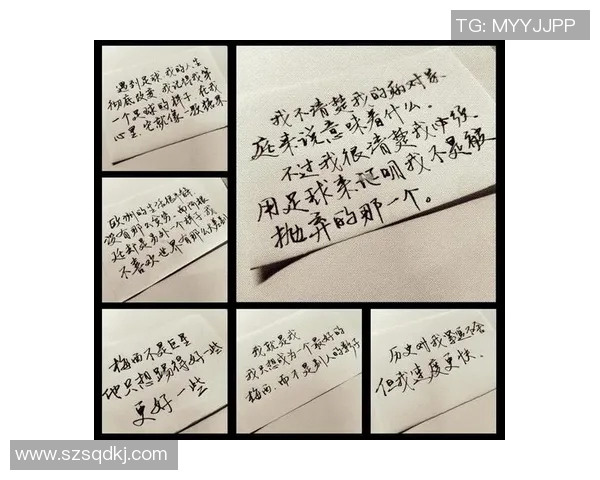 TG: MYYJJPP
遇到足球 我的人生
彻底改变 我记得我第
一个足球的样子 在我
心里 它就像一颗糖果
我不清楚我的病对家
庭来说意味着什么。
不过我很清楚我必须
用足球来证明我不是被
抛弃的那一个。
欧洲的生活
没有那么容易
不喜欢世界有那么差别
梅西不是巨星
他只想踢得好一些
更好一些
我就是我
我只想成为一个最好的
梅西，而不是别人的影子
历史对我紧追不舍
但我速度更快.
www.szsqdkj.com